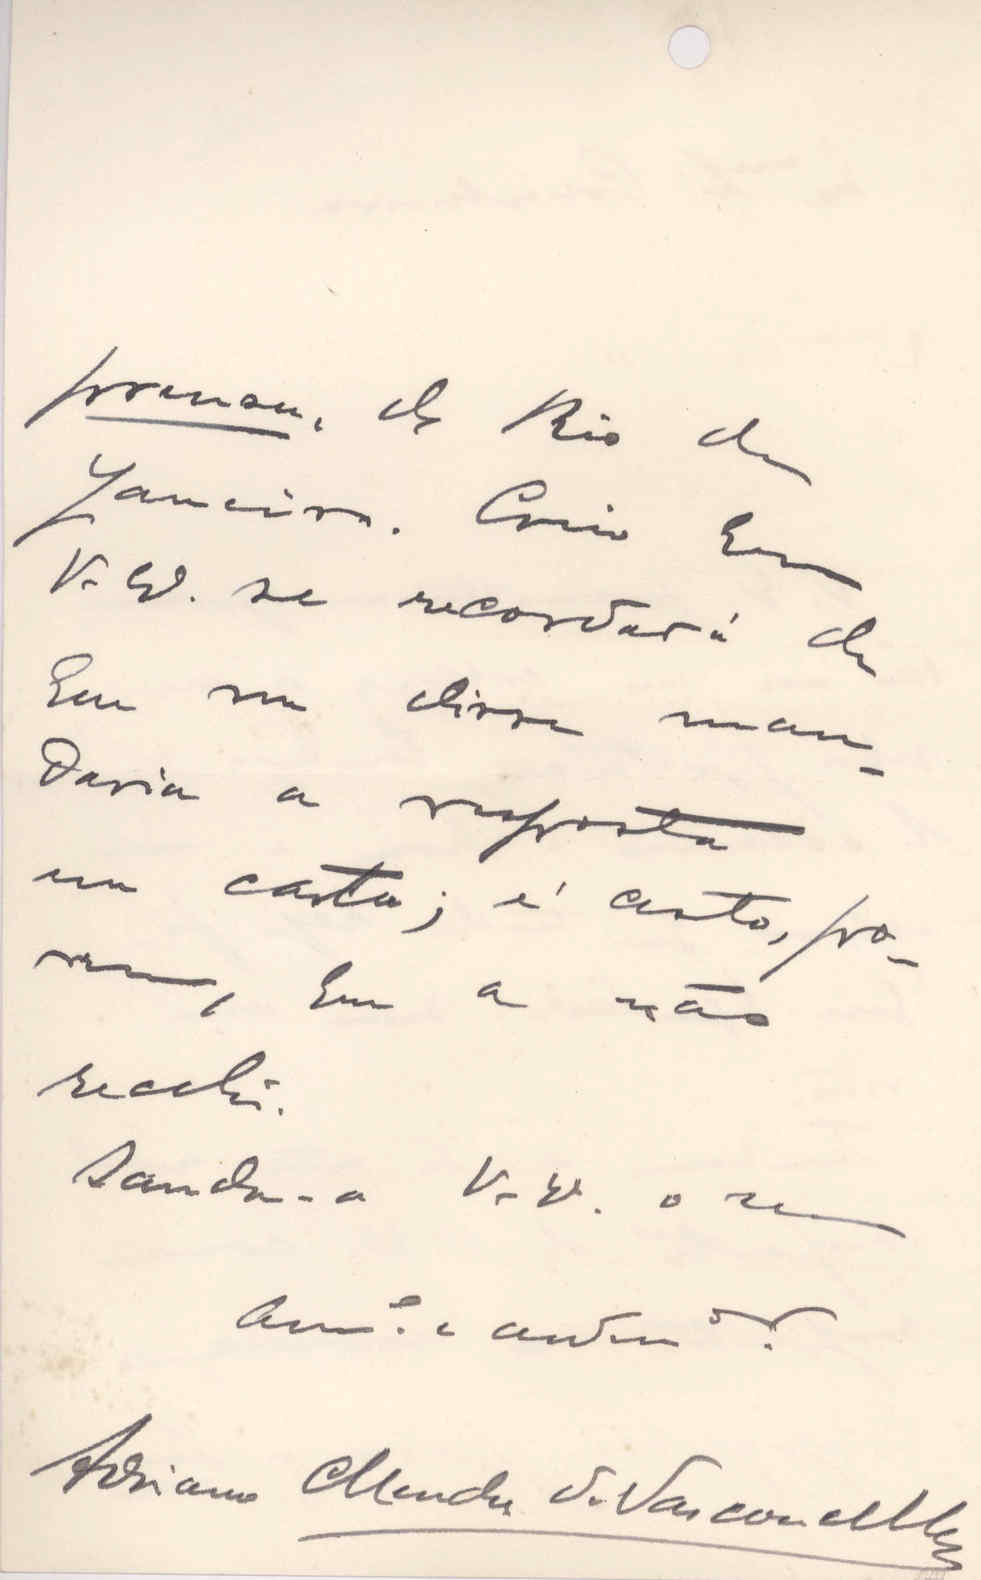 prensa, do Rio de
Janeiro. Creio que
V. Exª. se recordará de
que me disse man-
daria a resposta
em carta; é certo, po-
rem, que a não
recebi.
Sauda-o V. Exª. o seu
amº. e admdor.
Adriano Mendes de Vasconcellos